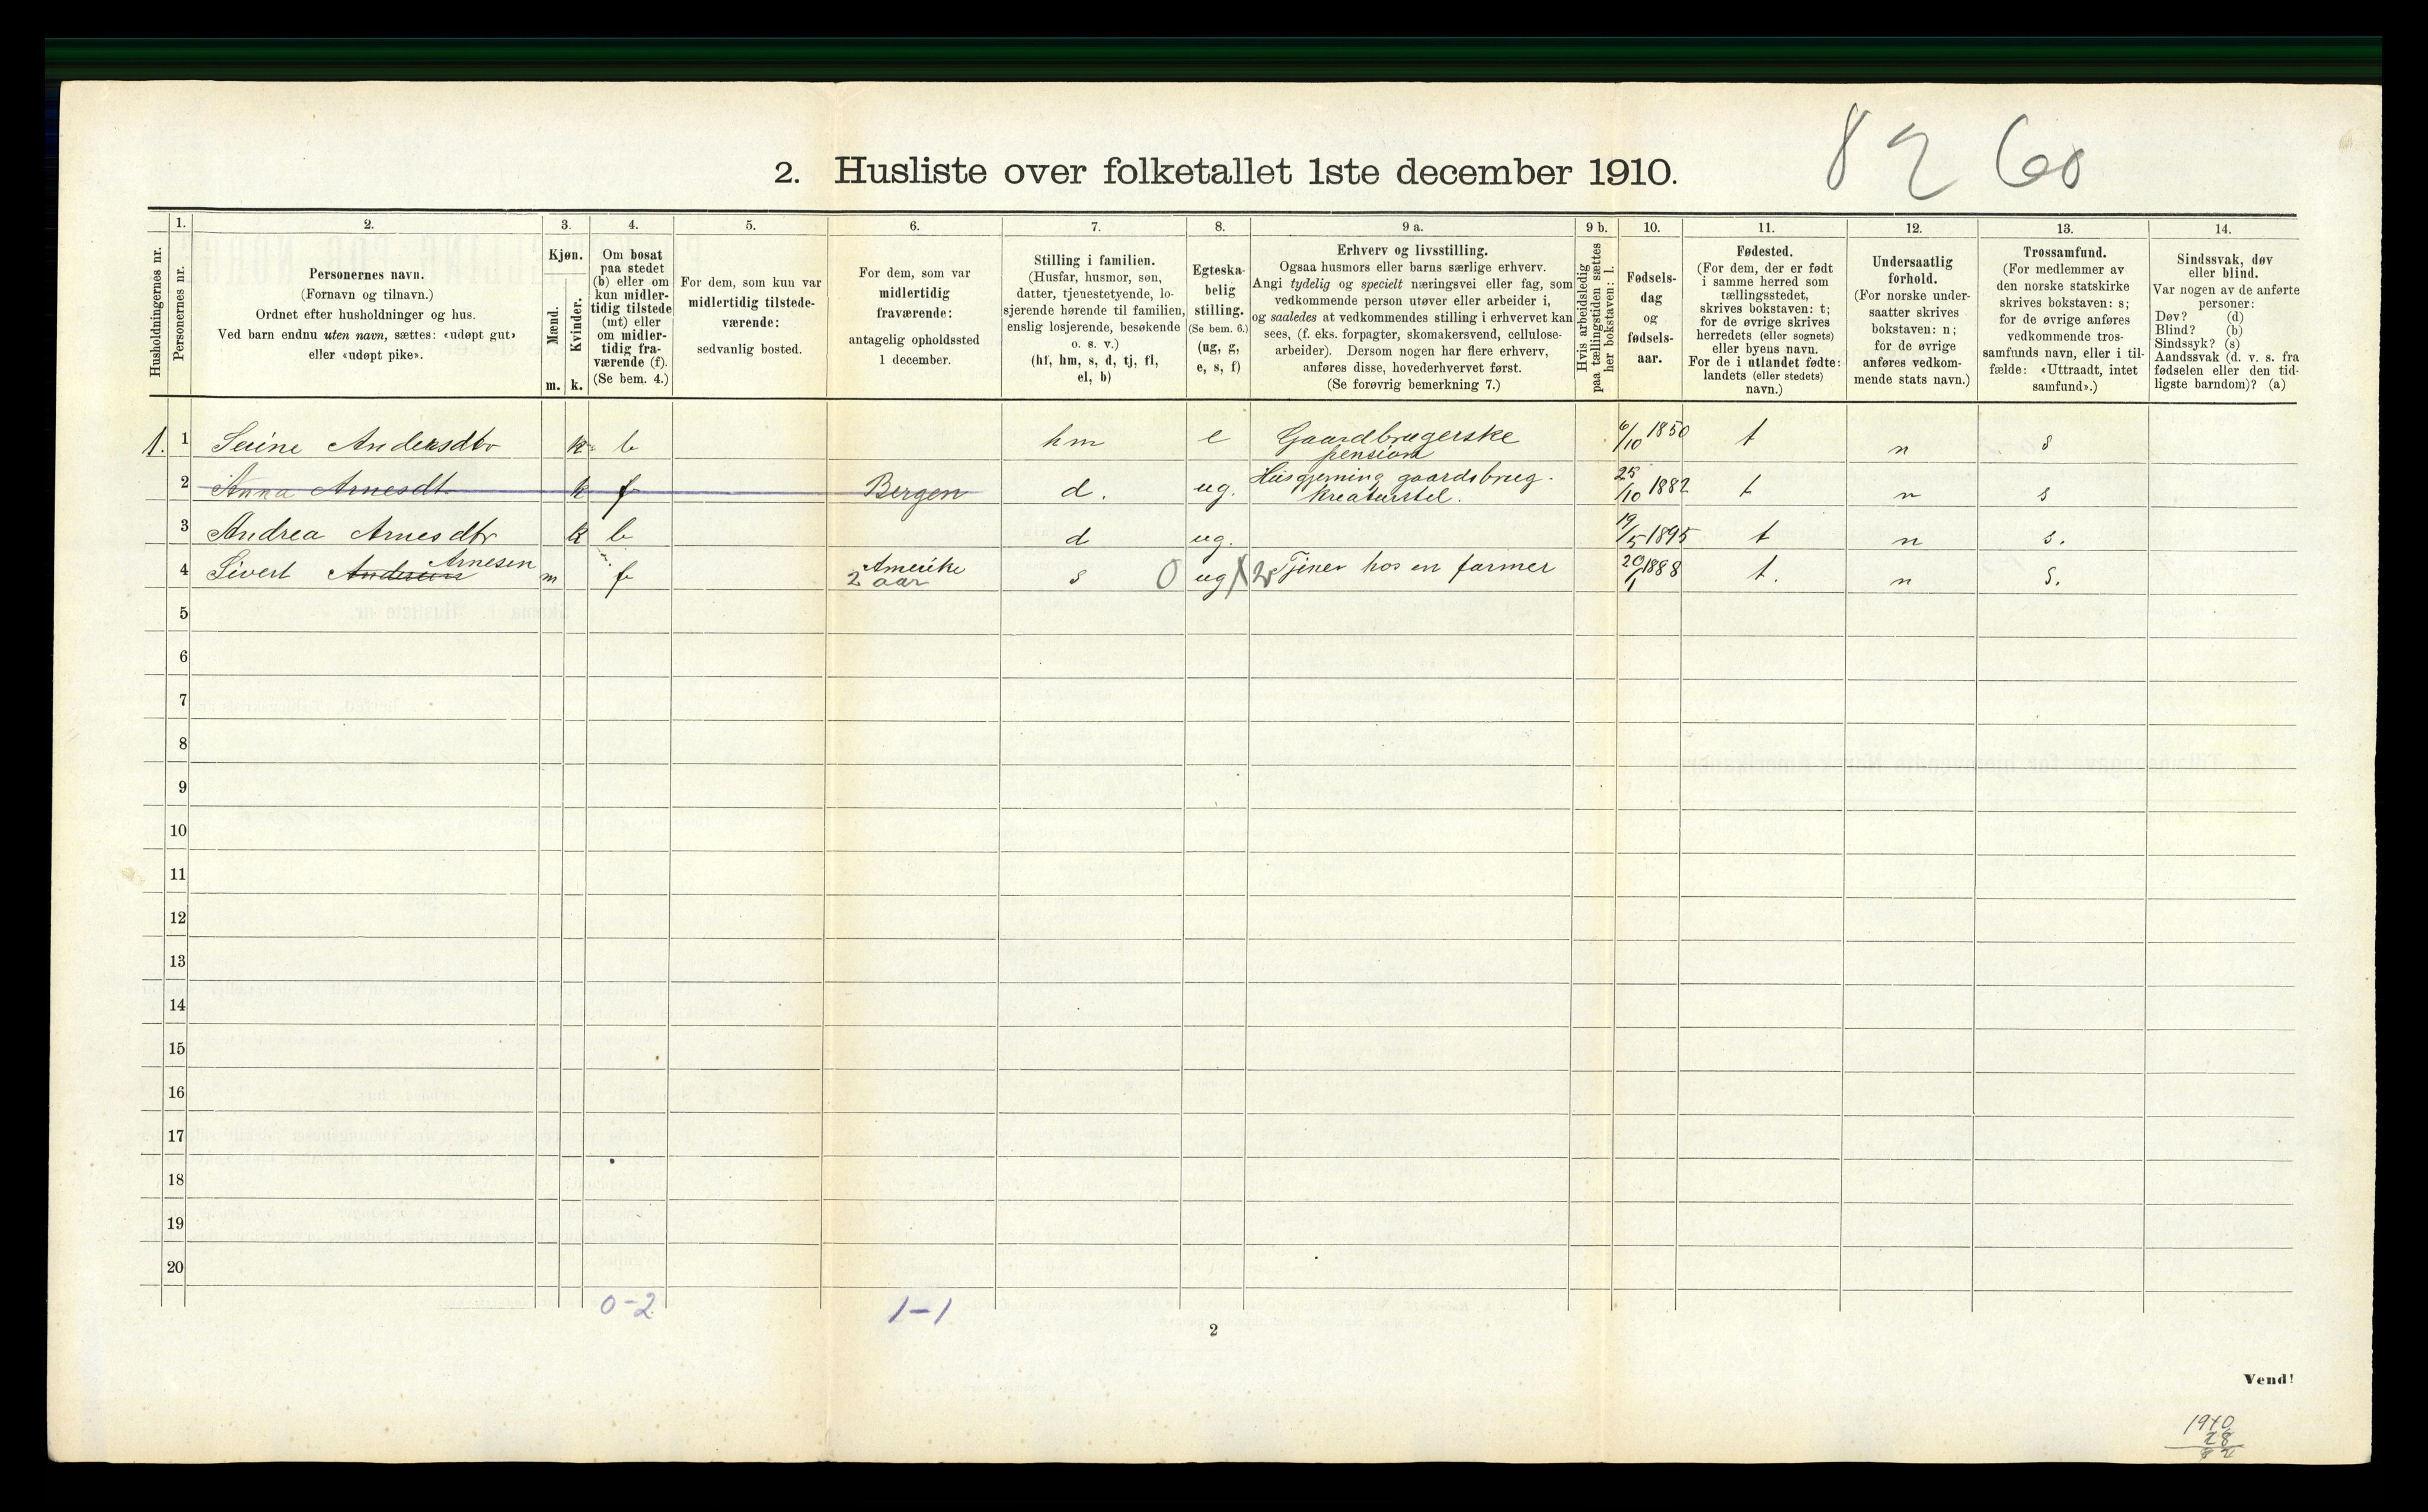 82 60
2. Husliste over folketallet 1ste december 1910.
Husholdningernes nr.
1.
Personernes nr.
2.
Personernes navn.
(Fornavn og tilnavn.)
Ordnet efter husholdninger og hus.
Ved barn endnu uten navn, sættes: «udøpt gut»
eller «udøpt pike».
3.
Kjøn.
Mænd.
Kvinder.
m. k.
4.
Om bosat
paa stedet
(b) eller om
kun midler-
tidig tilstede
(mt) eller
om midler-
tidig fra-
værende (f).
(Se bem. 4.)
5.
For dem, som kun var
midlertidig tilstede-
værende:
sedvanlig bosted.
6.
For dem, som var
midlertidig
fraværende:
antagelig opholdssted
1 december.
7.
Stilling i familien.
(Husfar, husmor, søn,
datter, tjenestetyende, lo-
sjerende hørende til familien,
enslig losjerende, besøkende
o. s. v.)
(hf, hm, s, d, tj, fl,
el, b)
8.
Egteska-
belig
stilling.
(Se bem. 6.)
(ug, g,
e, s, f)
9 a.
Erhverv og livsstilling.
Ogsaa husmors eller barns særlige erhverv.
Angi tydelig og specielt næringsvei eller fag, som
vedkommende person utøver eller arbeider i,
og saaledes at vedkommendes stilling i erhvervet kan
sees, (f. eks. forpagter, skomakersvend, cellulose-
arbeider). Dersom nogen har flere erhverv,
anføres disse, hovederhvervet først.
(Se forøvrig bemerkning 7.)
9 b.
Hvis arbeidsledig
paa tællingstiden sættes
her bokstaven: l.
10.
Fødsels-
dag
og
fødsels-
aar.
11.
Fødested.
(For dem, der er født
i samme herred som
tællingsstedet,
skrives bokstaven: t;
for de øvrige skrives
herredets (eller sognets)
eller byens navn.
For de i utlandet fødte:
landets (eller stedets)
navn.)
12.
Undersaatlig
forhold.
(For norske under-
saatter skrives
bokstaven: n;
for de øvrige
anføres vedkom-
mende stats navn.)
13.
Trossamfund.
(For medlemmer av
den norske statskirke
skrives bokstaven: s;
for de øvrige anføres
vedkommende tros-
samfunds navn, eller i til-
fælde: «Uttraadt, intet
samfund».)
14.
Sindssvak, døv
eller blind.
Var nogen av de anførte
personer:
Døv? (d)
Blind? (b)
Sindssyk? (s)
Aandssvak (d. v. s. fra
fødselen eller den tid-
ligste barndom)? (a)
1. 1 Serine Andersdtr k b hm e Gaardbrugerske pension 6/10 1850 t n s
2 Anna Arnesdt. k f Bergen d. ug. Husgjerning gaardsbrug. kreaturstel. 25/10 1882 t n s
3 Andrea Arnesdtr k b d ug. 19/5 1895 t n s.
4 Sivert Andersen Arnesen m f Amerike 2 aar s 0 ug X 2 Tjener hos en farmer 20/1 1888 t. n s.
5
6
7
8
9
10
11
12
13
14
15
16
17
18
19
20
0-2 1-1
2
Vend!
1910
28
82